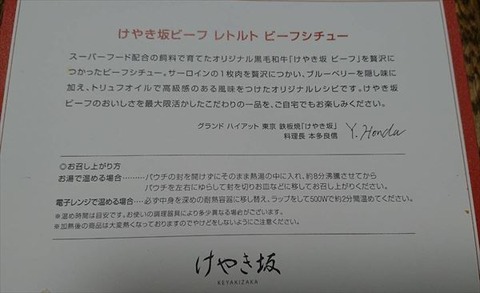 けやき坂ビーフ レトルト ビーフシチュー
スーパーフード配合の飼料で育てたオリジナル黒毛和牛「けやき坂 ビーフ」を贅沢に
つかったビーフシチュー。サーロインの1枚肉を贅沢につかい、ブルーベリーを隠し味に
加え、トリュフオイルで高級感のある風味をつけたオリジナルレシピです。けやき坂
ビーフのおいしさを最大限活かしたこだわりの一品を、ご自宅でもお楽しみください。
グランド ハイアット 東京 鉄板焼「けやき坂」
料理長 本多良信 Y. Honda
◎お召し上がり方
お湯で温める場合……パウチの封を開けずにそのまま熱湯の中に入れ、約8分沸騰させてから
パウチを左右にゆらして封を切りお皿などに移してお召し上がりください。
電子レンジで温める場合…必ず中身を深めの耐熱容器に移し替え、ラップをして500Wで約2分間温めてください。
※温め時間は目安です。お使いの調理器具により多少異なる場合がございます。
※加熱後の商品は大変熱くなっておりますのでやけどをしないようにご注意ください。
けやき坂
KEYAKIZAKA